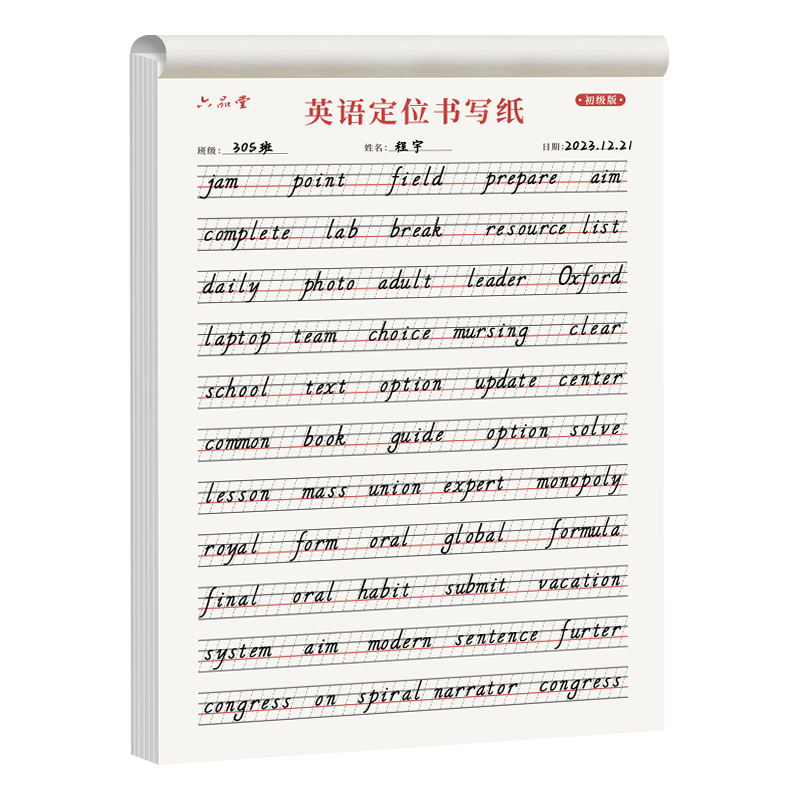 六品堂
英语定位书写纸
·初级版·
班级: 305班 姓名: 程宇 日期: 2023.12.21
jam point field prepare aim
complete lab break resource list
daily photo adult leader Oxford
laptop team choice mursing clear
school text option update center
common book guide option solve
lesson mass union expert monopoly
royal form oral global formula
final oral habit submit vacation
system aim modern sentence furter
congress on spiral narrator congress